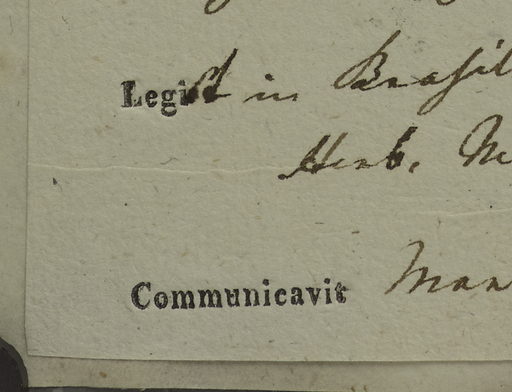 Legit in Brasil
Herb. M
Communicavit Man